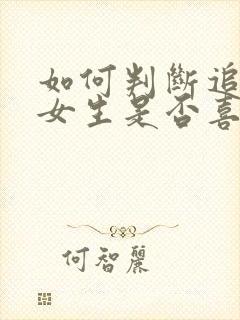 如何判斷追
女生是否喜
何智麗